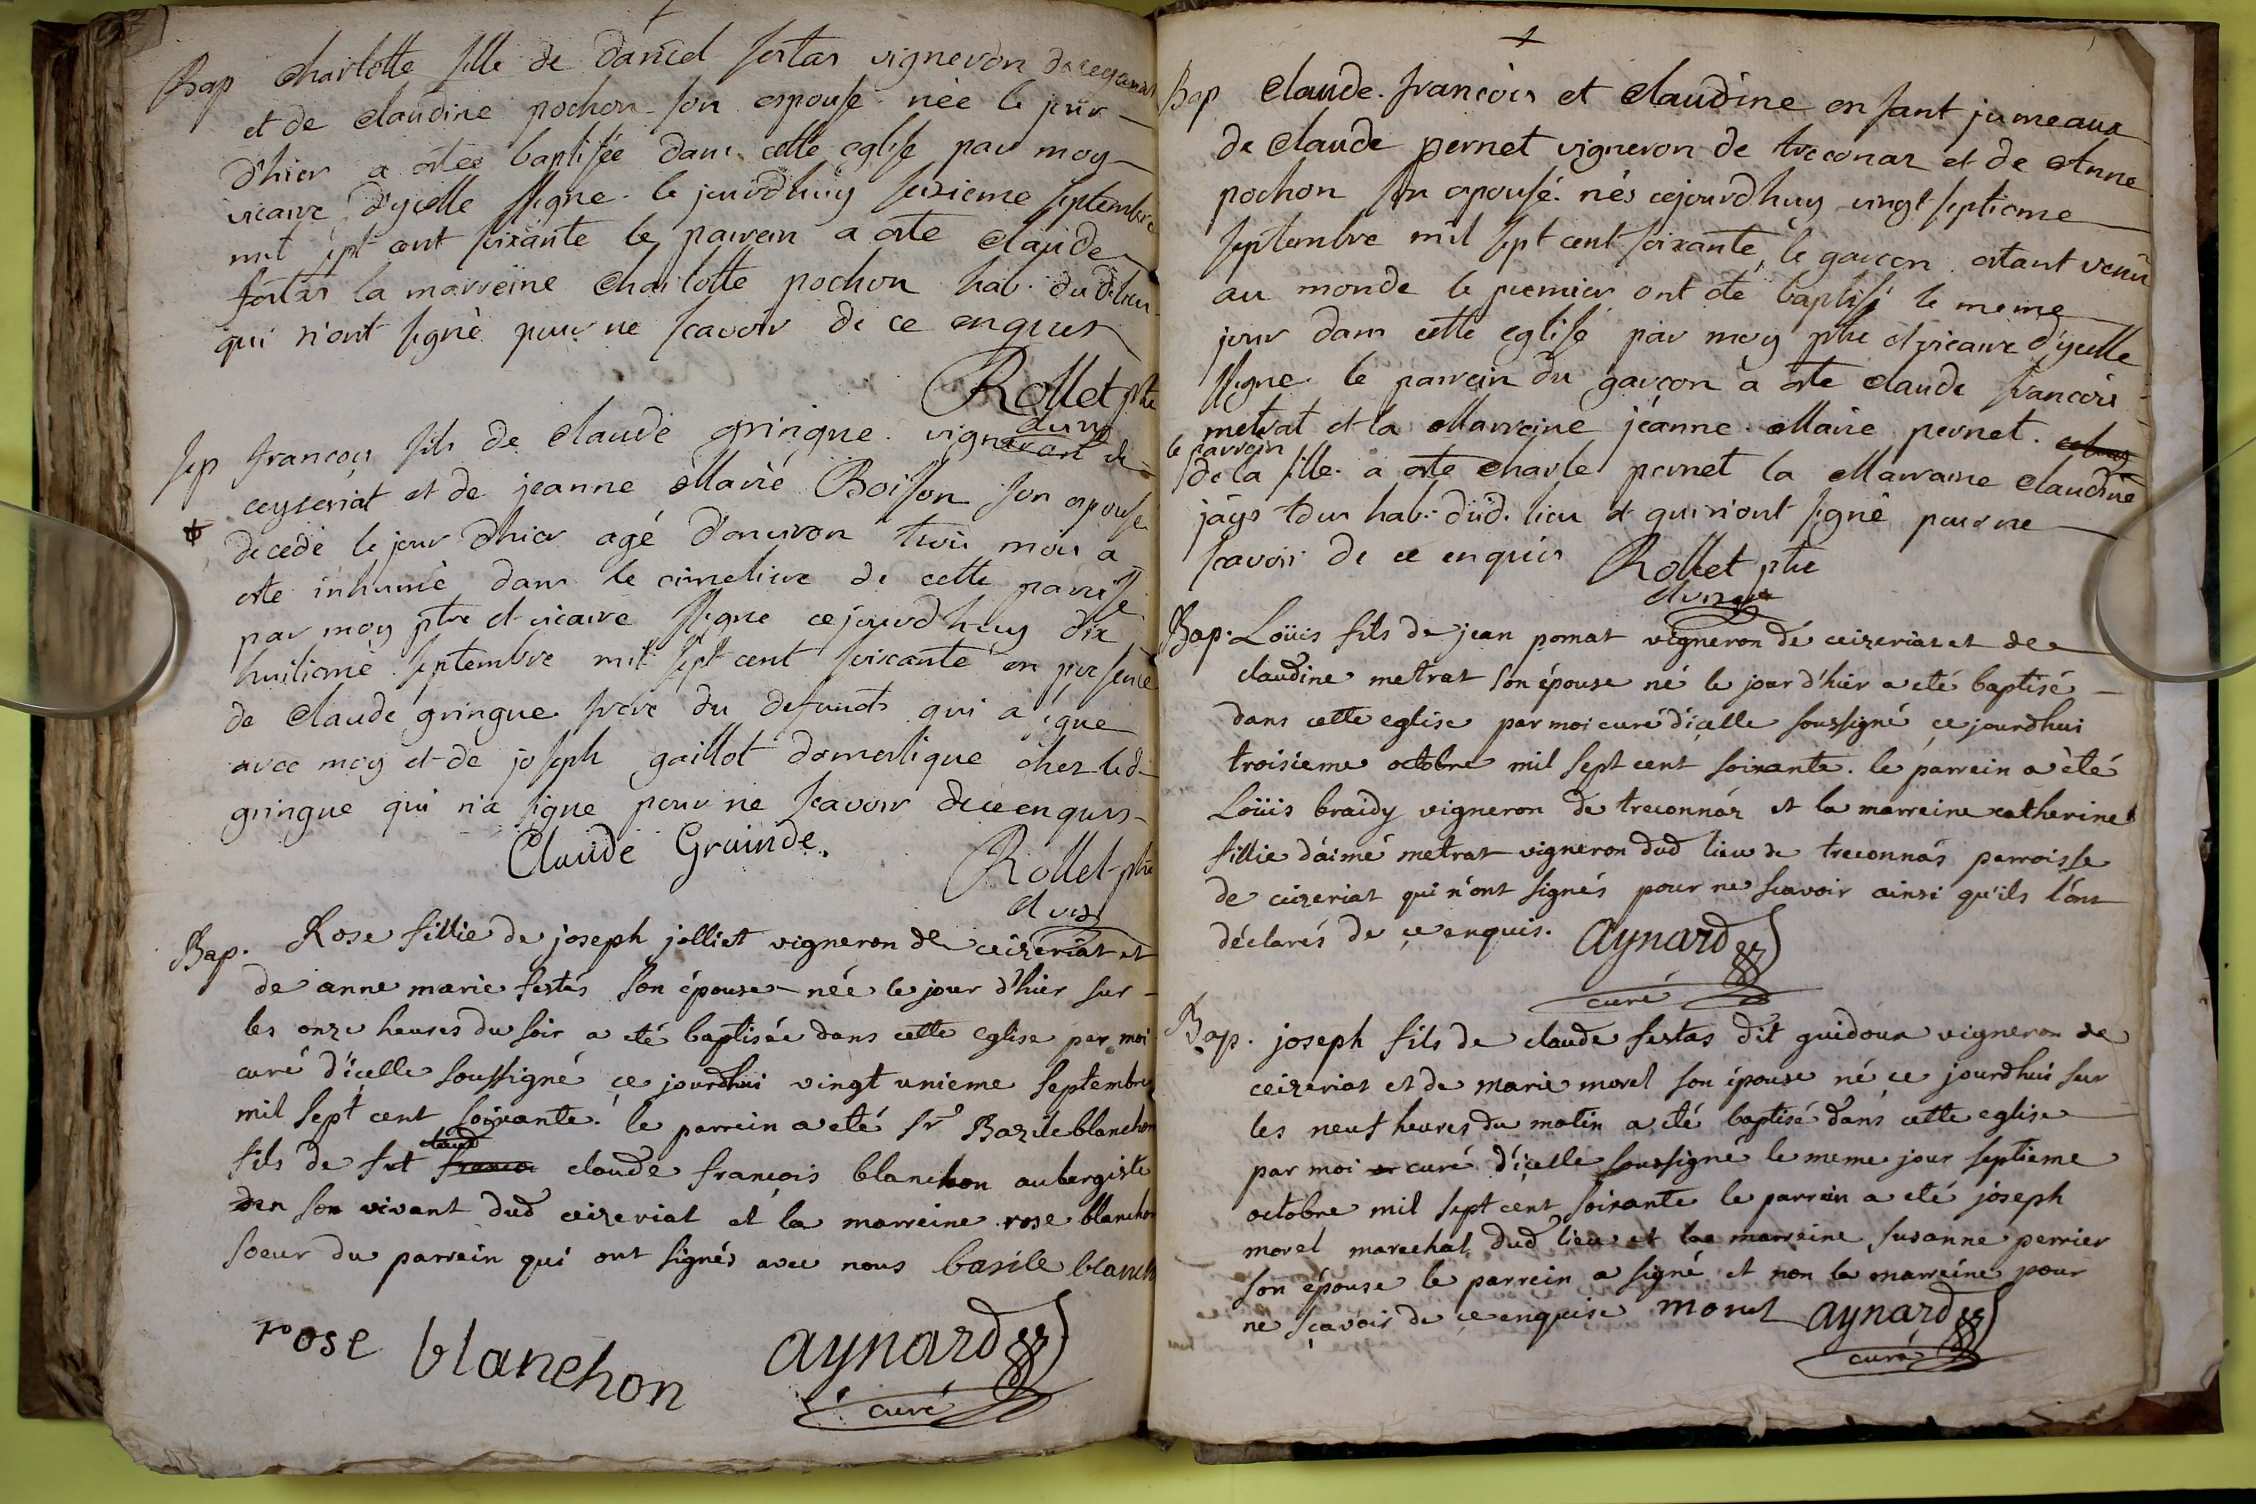 Bap Charlotte fille de daniel festas vigneron
et de claudine pochon son espouse née le jour
d'hier a esté baptisée dans cette eglise par moy
vicaire d'ycelle ssigné le jourd'huy seixieme septembre
mil sept cent soixante le parrein a esté claude
festas la marreine charlotte pochon hab. dud. lieu
qui n'ont signé pour ne scavoir de ce enquis
Rollet ptre
et vic
sep francois fils de claude gringue vigneron de
ceyseriat et de jeanne Marie Boison son epouse
decedé le jour d'hier agé d'environ trois mois a
esté inhumé dans le cimetiere de cette parroisse
par moy ptre et vicaire ssigné cejourd'huy dix
huitieme septembre mil sept cent soixante en presence
de claude gringue frere du defunct qui a signé
avec moy et de joseph gaillot domestique chez led
gringue qui n'a signé pour ne scavoir de ce enquis
Claude Grainde.
Rollet ptre
et vic
Bap. Rose fillie de joseph jolliet vigneron de ceizeriat et
de anne marie festas son épouse née le jour d'hier sur
les onze heures du soir a eté baptisée dans cette eglise par moi
curé d'icelle soussigné ce jourdhui vingt unieme septembre
mil sept cent soixante. le parrein a eté sr Bazile blanchon
claud
fils de fut francoi claude françois blanchon aubergiste
den son vivant dud ceizeriat et la marreine rose blanchon
soeur du parrein qui ont signés avec nous basile blanch
rose blanchon aynard
curé
Bap Claude françois et Claudine enfant jumeaux
de Claude pernet vigneron de treconas et de Anne
pochon son epouse nés cejourdhuy vingt septieme
septembre mil sept cent soixante, le garçon estant venû
au monde le premier ont eté baptisé le meme
jour dans cette eglise par moy ptre et vicaire d'ycelle
ssigné le parrein du garçon a esté claude françois
metrat et la Marreine jéanne Marie pernet.
le parrein
de la fille a esté charle pernet la Marraine claudine
jays tous hab. dud. lieu et qui n'ont signé pour ne
scavoir de ce enquis Rollet ptre
et vicaire
Bap. Loüis fils de jean pomat vigneron de ceizeriat et de
claudine metrat son épouse né le jour d'hier a eté baptisé
dans cette eglise par moi curé d'icelle soussigné ce jourdhui
troisieme octobre mil sept cent soixante. le parrein a été
Loüis braidy vigneron de treconnas et la marreine catherine
fillie d'aimé metrat vigneron dud lieu de treconnas parroisse
de ceizeriat qui n'ont signés pour ne scavoir ainsi qu'ils l'ont
déclarés de ce enquis. aynard
curé
Bap. joseph fils de claude festas dit guidoux vigneron de
ceizeriat et de marie morel son épouse né ce jourdhui sur
les neuf heures du matin a eté baptisé dans cette eglise
par moi curé d'icelle soussigné le meme jour septieme
octobre mil sept cent soixante le parrein a eté joseph
morel marechal dud lieu et la marreine susanne perrier
son épouse le parrein a signé et non la marreine pour
ne sçavoir de ce enquise morel aynard
curé